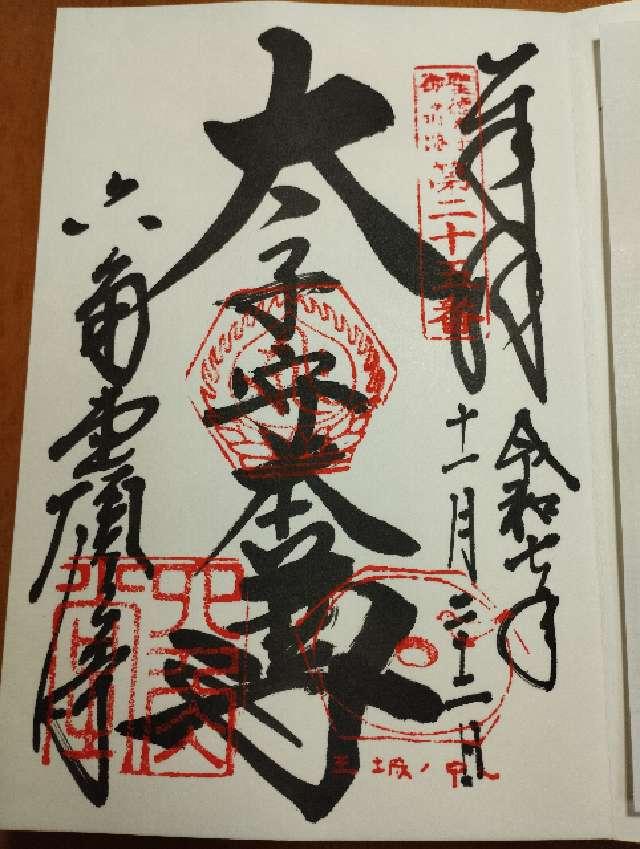 奉拝
令和七年
十一月二十二日
聖徳太子
御遺跡第二十五番
太子守本尊
六角堂頂法寺
六角堂